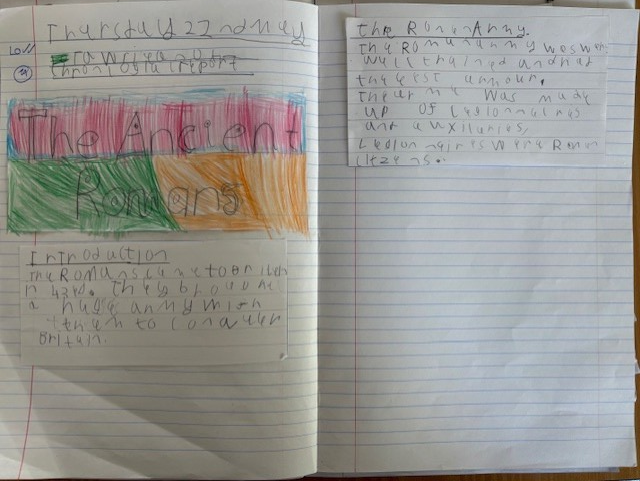 Thursday 22nd May
LO//
To write a non
chronological report
The Ancient
Romans
Introduction
The Romans came to britain
in 43AD. They brought
a huge army with
them to conquer
britain.
The Roman Army.
The Roman army was
well trained and had
the best armour.
The army was made
up of Legionnairies
and auxiliaries.
Legionnairies were Roman
citezens.